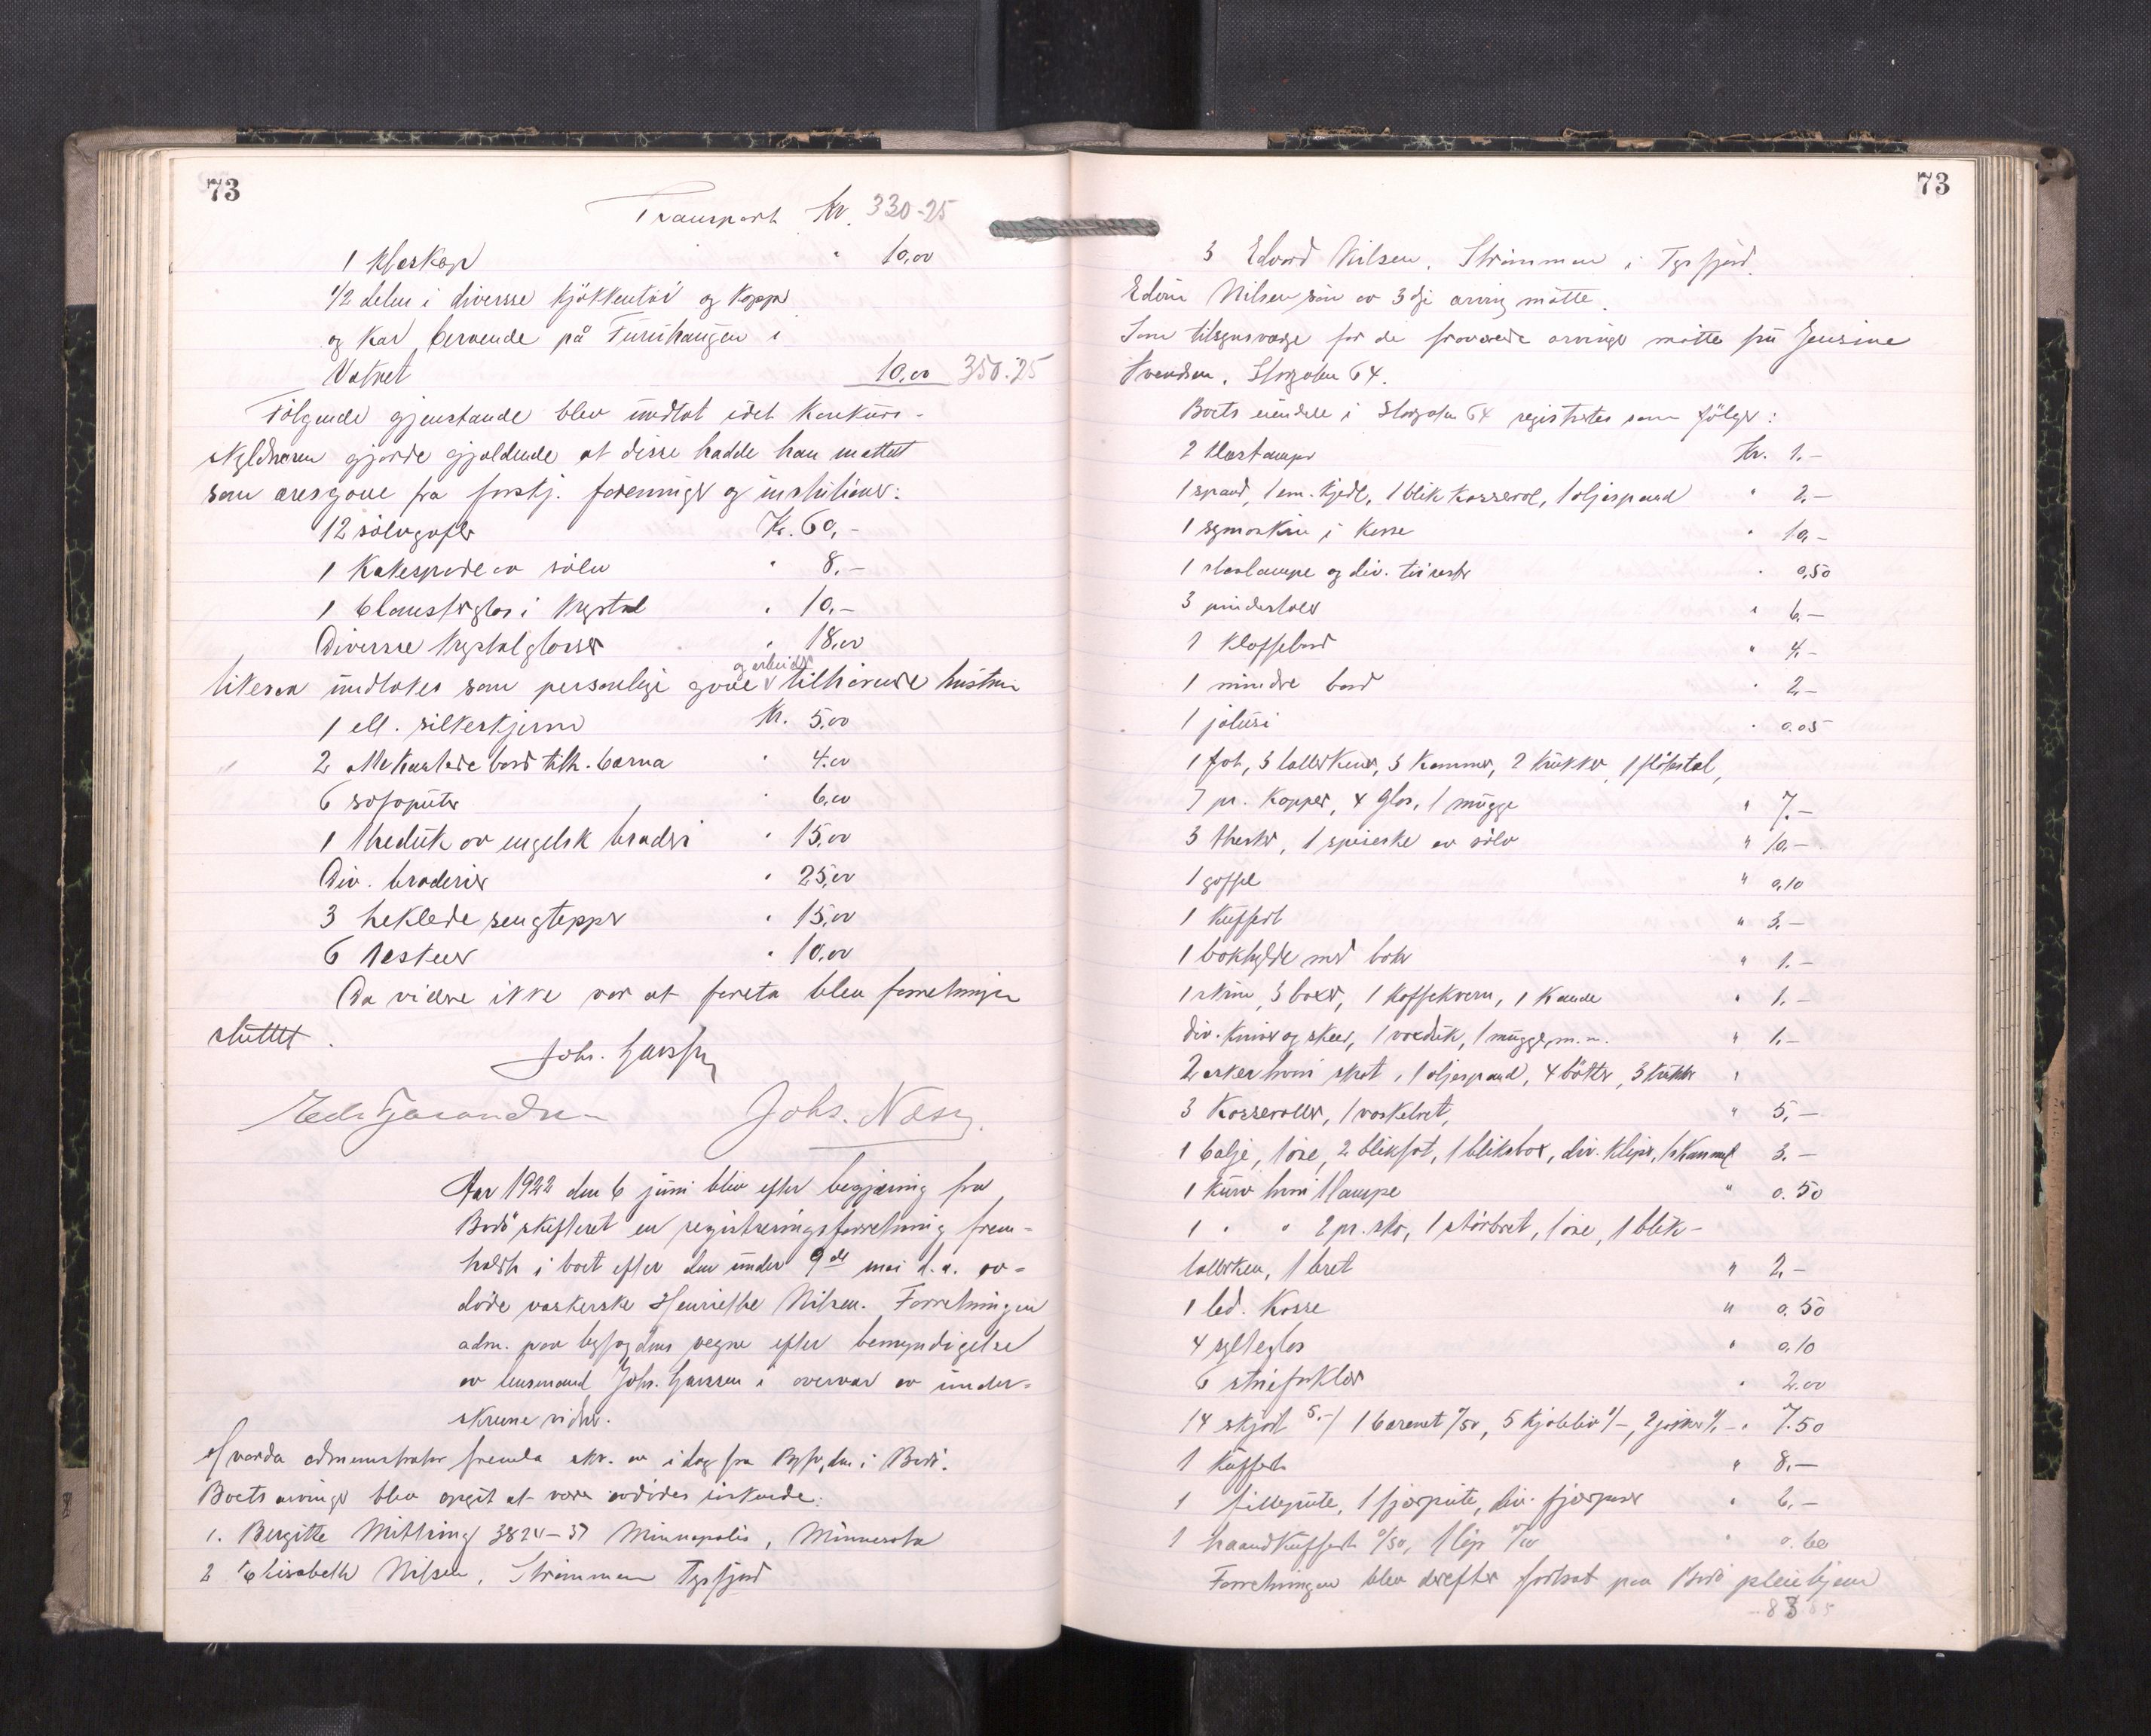 73
Transport Kr. 330-25
1 Klæskap " 10,00
1/2 delen i diverse kjøkkentøi og kopper
og kar beroende på Furuhaugen i
Vatnet 10,00 350.25
Følgende gjenstande blev undtat idet konkurs-
skyldneren gjorde gjældende at disse hadde han mottat
som æresgave fra forskj. foreninger og institutioner:
12 sølvgafler Kr. 60,-
1 Kakespade av sølv " 8.-
1 blomsterglas i krystal " 10.-
Diverse krystalglasser " 18,00
likesaa undtokes som personlige gave og arbeider tilhørende hustru
1 ell. silkeskjerm Kr. 5,00
2 ottekantede bord tilh. barna " 4.00
6 sofaputer " 6,00
1 theduk av engelsk broderi " 15,00
Div. broderier " 25,00
3 heklede sengtepper " 15,00
6 " 10,00
Da videre ikke var at foreta blev forretningen
sluttet.
Johs. Garssen
Johs. Næss.
Aar 1922 den 6 juni blev efter begjæring fra
Bodø skifteret en registreringsforretning frem-
holdt i boet efter den under 9de mai d.a. av-
døde vaskerske Henriette Nilsen. Forretningen
adm. paa byfogdens vegne efter bemyndigelse
av lensmand Johs. Garssen i overvær av under-
skrevne vidner.
administrator fremla skr. av i dag fra Byfogden i Bodø.
Boets arvinger blev opgit at være avdødes søskende:
1. Bergitte Mithring 3824-37 Minnapolis, Minnesota
2 Elisabeth Nilsen, Strømmen Tysfjord
73
3 Edvard Nilsen, Strømmen i Tysfjord.
Edvin Nilsen søn av 3dje arving møtte.
Som tilsynsværge for de fraværende arvinger møtte fru Jensine
Svendsen, Storgaten 64.
Boets eiendele i Storgaten 64 registrertes som følger:
2 Klæstamper Kr. 1.-
1 spand, 1 em. kjedl, 1 blik kasserol, 1 oljespand " 2.-
1 symaskin i kasse " 10,-
1 staalampe og div. tøirester " 0,50
3 pindestoler " 6.-
1 Klaffebord " 4.-
1 mindre bord " 2.-
1 jalusi " 0.05
1 fat, 3 tallerkener, 3 kammer, 2 krukker, 1 fløtestel,
7 pr. kopper, 4 glas, 1 mugge " 7.-
3 theskr, 1 spiseske av sølv " 10.-
1 gaffel " 0,10
1 Kuffert " 3.-
1 bokhylde med bøker " 1.-
1 skrin, 3 boxer, 1 kaffekvern, 1 kande " 1.-
div. kniver og skeer, 1 voxduk, 1 mugge m.m. " 1.-
2 esker hvori skrot, 1 oljespand, 4 bøtter, 3 krukker "
3 Kasseroller, 1 vaskebret, " 5.-
1 balje, 1 øse, 2 blikfat, 1 blikbox, div. klipe, 3.-
1 Kurv hvori 1 lampe " 0.50
1 " " 2 pr. sko, 1 størbret, 1 øse, 1 blik-
tallerken, 1 bret " 2.-
1 led. Kasse " 0.50
4 sylteglas " 0,10
6 " 2.00
14 skjørt 5.-/ 1/50, 5 kjoleliv 1/-, 2 jakker 1/- " 7.50
1 Kuffert " 8.-
1 fillepute, 1 fjærpute, div. " 6.-
1 haandkuffert 0/50, " 0.60
Forretningen blev derefter fortsat paa Bodø pleiehjem